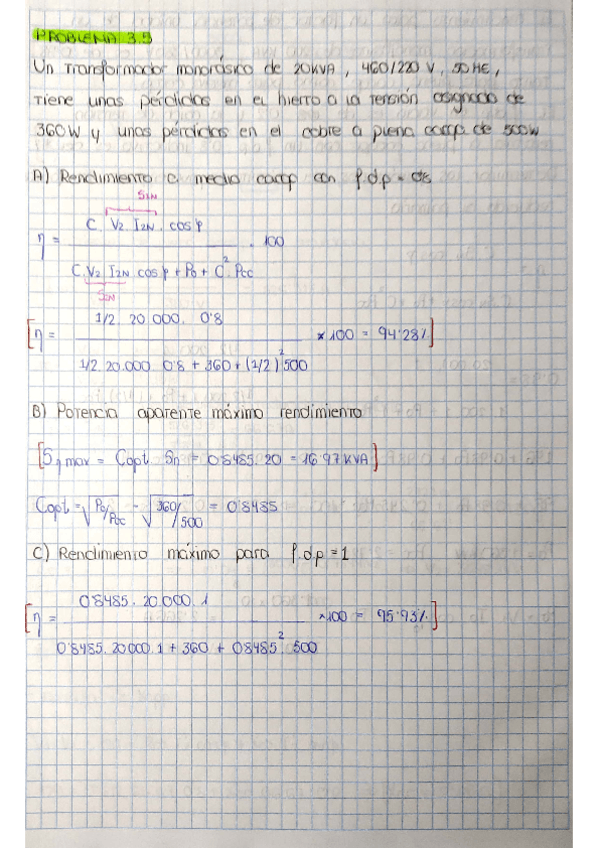 PROBLEMA 3.5
Un Transformador monofásico de 20KVA, 460/220 V, 50HZ,
tiene unas pérdidas en el hierro a la tensión asignada de
360W y unas pérdidas en el cobre a plena carga de 500W
A) Rendimiento a media carga con f.d.p = 0'8
SIN
C. V2. I2N. cos φ
η = ――― . 100
C. V2 I2N cos φ + P0 + C². Pcc
SIN
1/2. 20.000. 0'8
[η = ――― × 100 = 94'28%]
1/2. 20.000 0'8 + 360 + (1/2)² 500
B) Potencia aparente máximo rendimiento
[Sη max = Copt Sn = 0'8485. 20 = 16'97 KVA]
Copt = √P0/Pcc = √360/500 = 0'8485
C) Rendimiento máximo para f.d.p = 1
0'8485. 20.000. 1
[η = ――― ×100 = 95'93%]
0'8485. 20000. 1 + 360 + 0'8485². 500